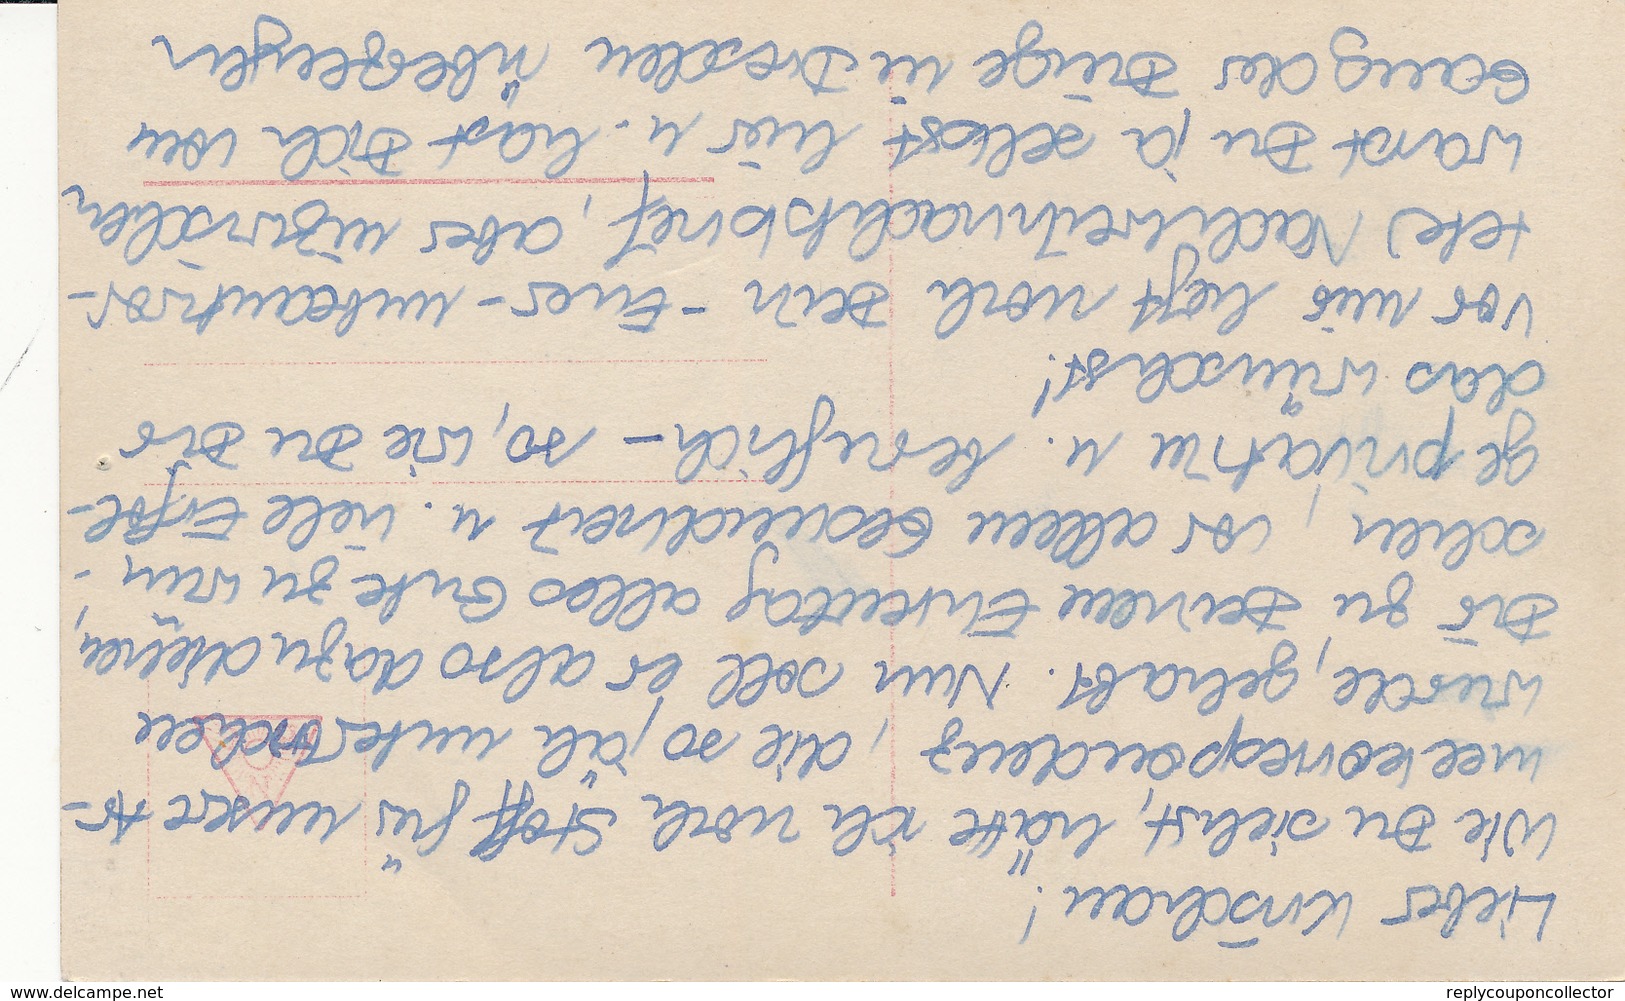 Lieber Kurschau!
Wie Du siehst, hätte ich noch Stoff für unsere Ar-
meekorrespondenz, die so jäh unterbrochen
wurde, gehabt. Nun soll er also dazu dienen,
Dir zu Deinem Ehrentag alles Gute zu wün-
schen, vor allem Gesundheit u. viele Erfol-
ge privatim u. beruflich – so, wie Du Dir
das wünschst!
Vor mir liegt noch Dein – Euer – unbeantwor-
tete) Nachweihnachtsbrief, aber inzwischen
warst Du ja selbst hier u. hast Dich vom
Gang der Dinge in Dresden überzeugen
delcampe.net
replycouponcollector